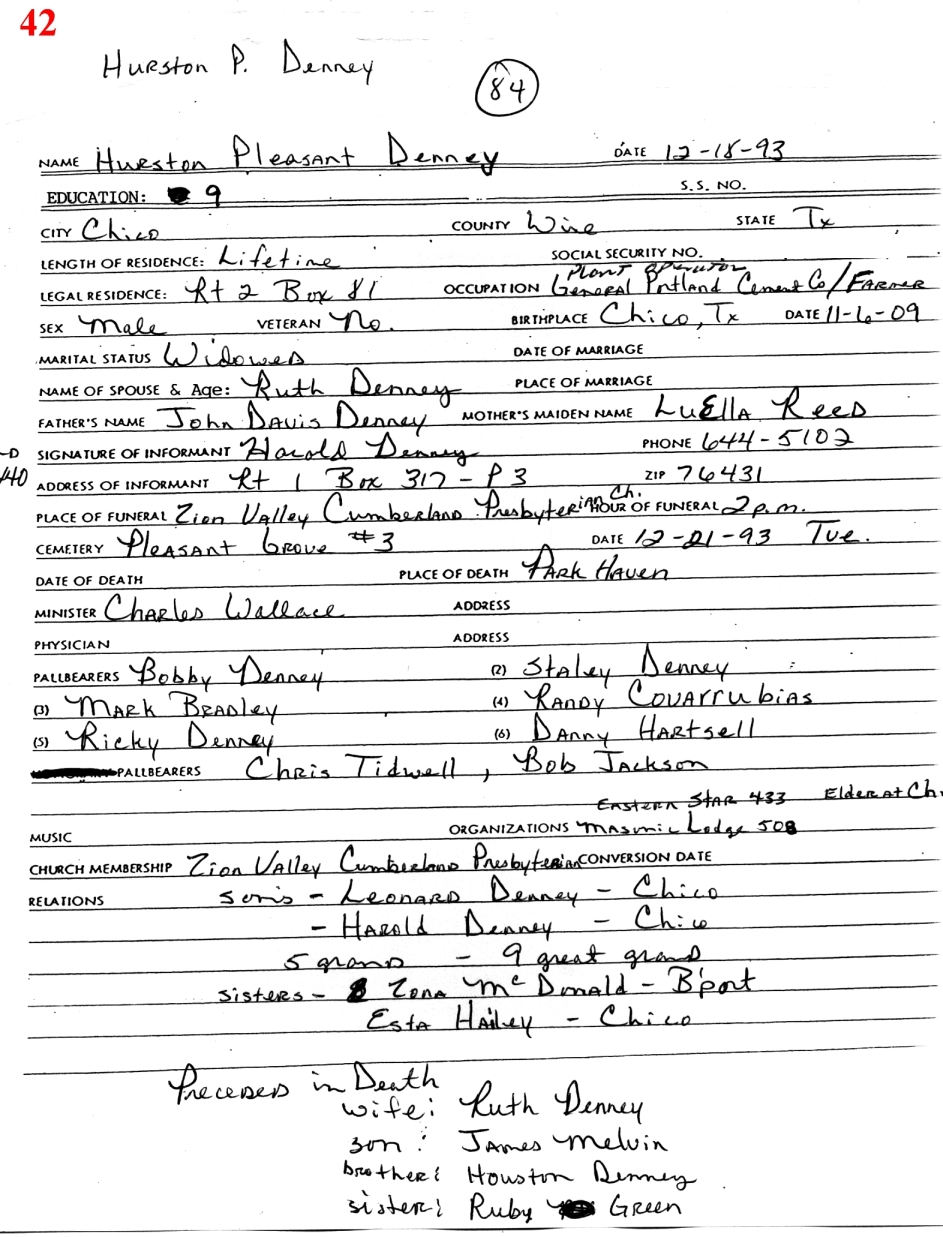 42
Hurston P. Denney
84
NAME Hurston Pleasant Denney DATE 12-18-93
EDUCATION: 9 S.S. NO.
CITY Chico COUNTY Wise STATE Tx
LENGTH OF RESIDENCE: Lifetime SOCIAL SECURITY NO.
Plant operator
LEGAL RESIDENCE: Rt 2 Box 81 OCCUPATION General Portland Cement Co/FARMER
SEX Male VETERAN No. BIRTHPLACE Chico, Tx DATE 11-6-09
MARITAL STATUS Widowed DATE OF MARRIAGE
NAME OF SPOUSE & Age: Ruth Denney PLACE OF MARRIAGE
FATHER'S NAME John Davis Denney MOTHER'S MAIDEN NAME LuElla Reed
-D SIGNATURE OF INFORMANT Harold Denney PHONE 644-5102
ADDRESS OF INFORMANT Rt 1 Box 317-P3 ZIP 76431
PLACE OF FUNERAL Zion Valley Cumberland Presbyterian Ch. HOUR OF FUNERAL 2 p.m.
CEMETERY Pleasant Grove #3 DATE 12-21-93 Tue.
DATE OF DEATH PLACE OF DEATH Park Haven
MINISTER Charles Wallace ADDRESS
PHYSICIAN ADDRESS
PALLBEARERS Bobby Denney (2) Staley Denney
(3) Mark Bradley (4) Randy Covarrubias
(5) Ricky Denney (6) Danny Hartsell
PALLBEARERS Chris Tidwell, Bob Jackson
Eastern Star 433 Elder at Ch.
MUSIC ORGANIZATIONS Masonic Lodge 508
CHURCH MEMBERSHIP Zion Valley Cumberland Presbyterian CONVERSION DATE
RELATIONS sons - Leonard Denney - Chico
- Harold Denney - Chico
5 grand - 9 great grand
sisters - Zona McDonald - B'port
Esta Hailey - Chico
Preceded in Death
wife: Ruth Denney
son: James Melvin
brother: Houston Denney
sister: Ruby Green